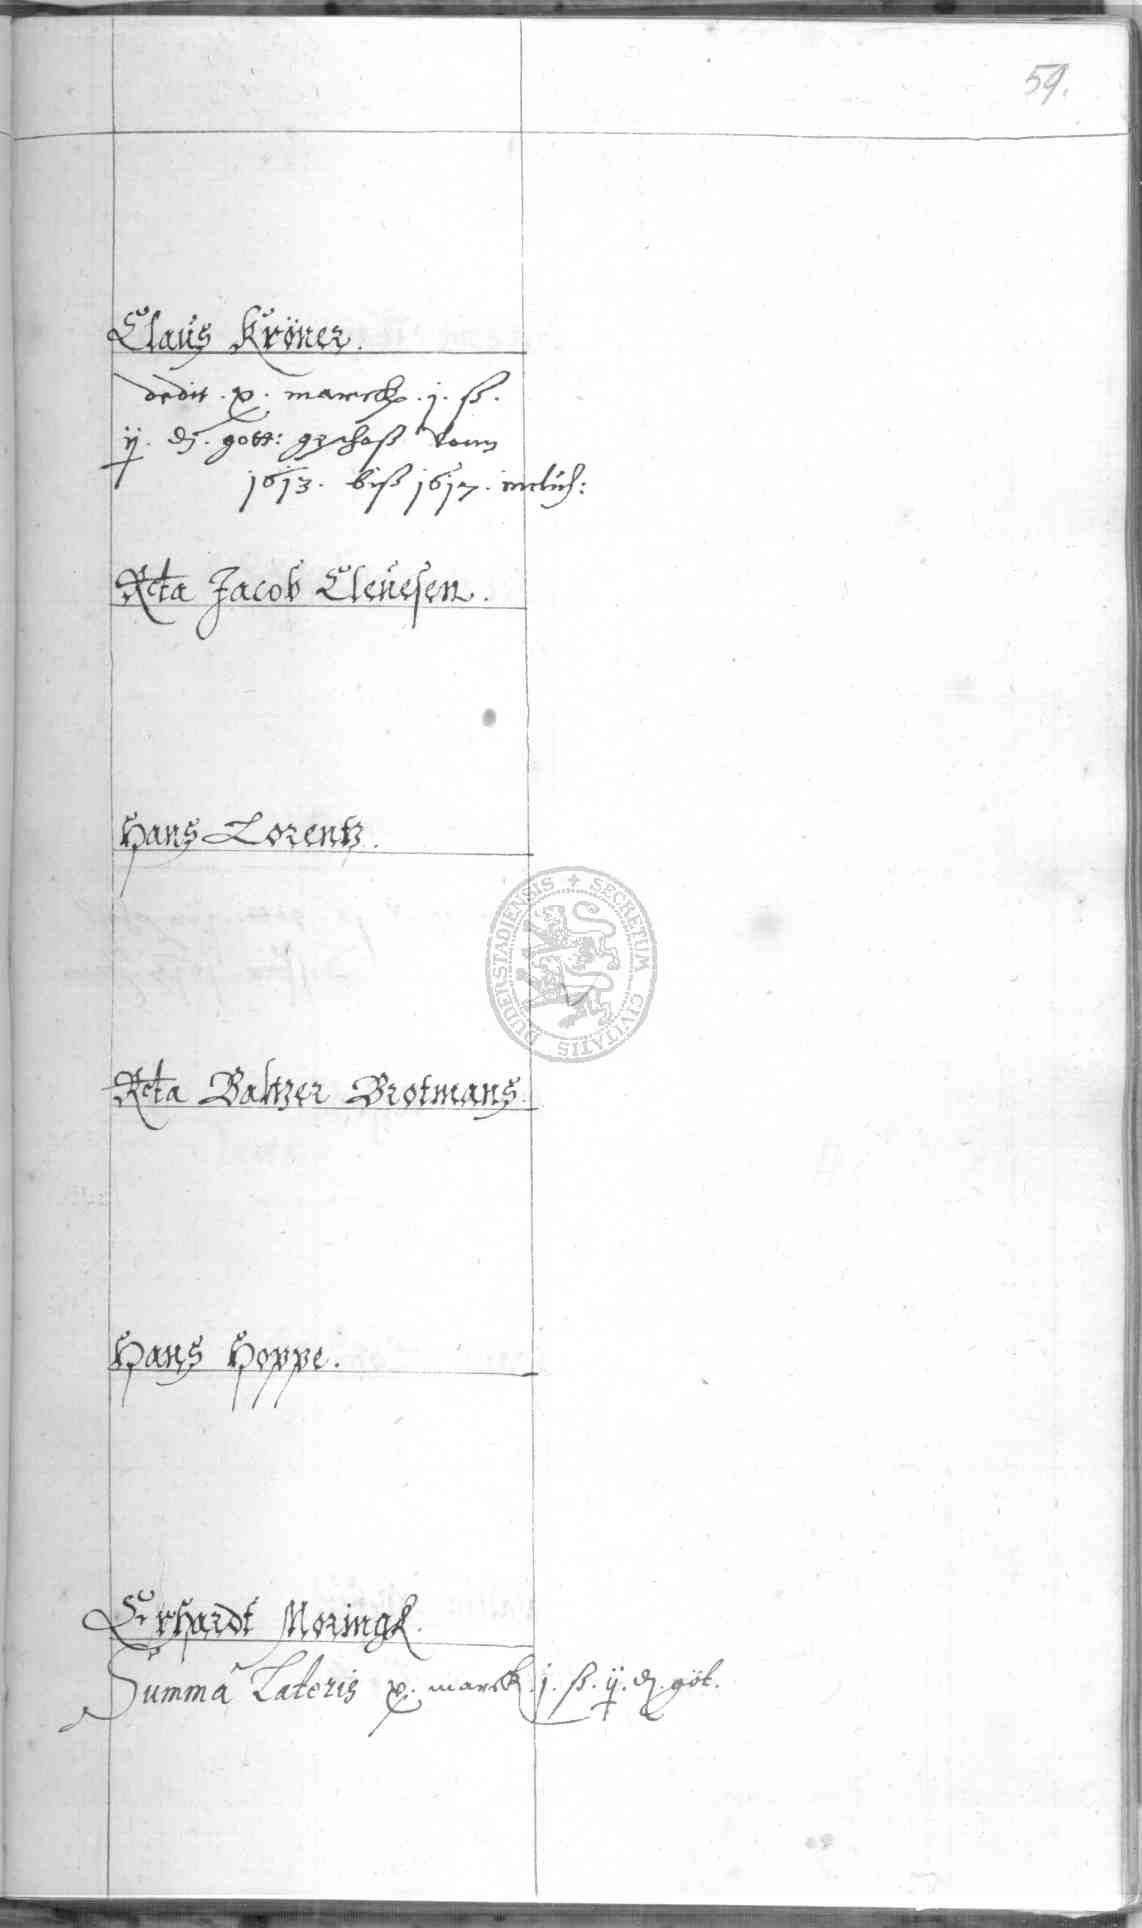 59.
Claus Kröner.
dedit . x . marck . j . ß .
ij . d . gott: gschoß vonn
1613 . biß 1617 . inclus:
Rcta Jacob Cleuesen .
Hans Lorentz .
Rcta Baltzer Brotmans .
Hans Hoppe .
Erhardt Moringk .
Summa Lateris x . marck . j . ß . ij . d . göt .
DUDERSTADIENSIS + SECRETUM CIVITATIS